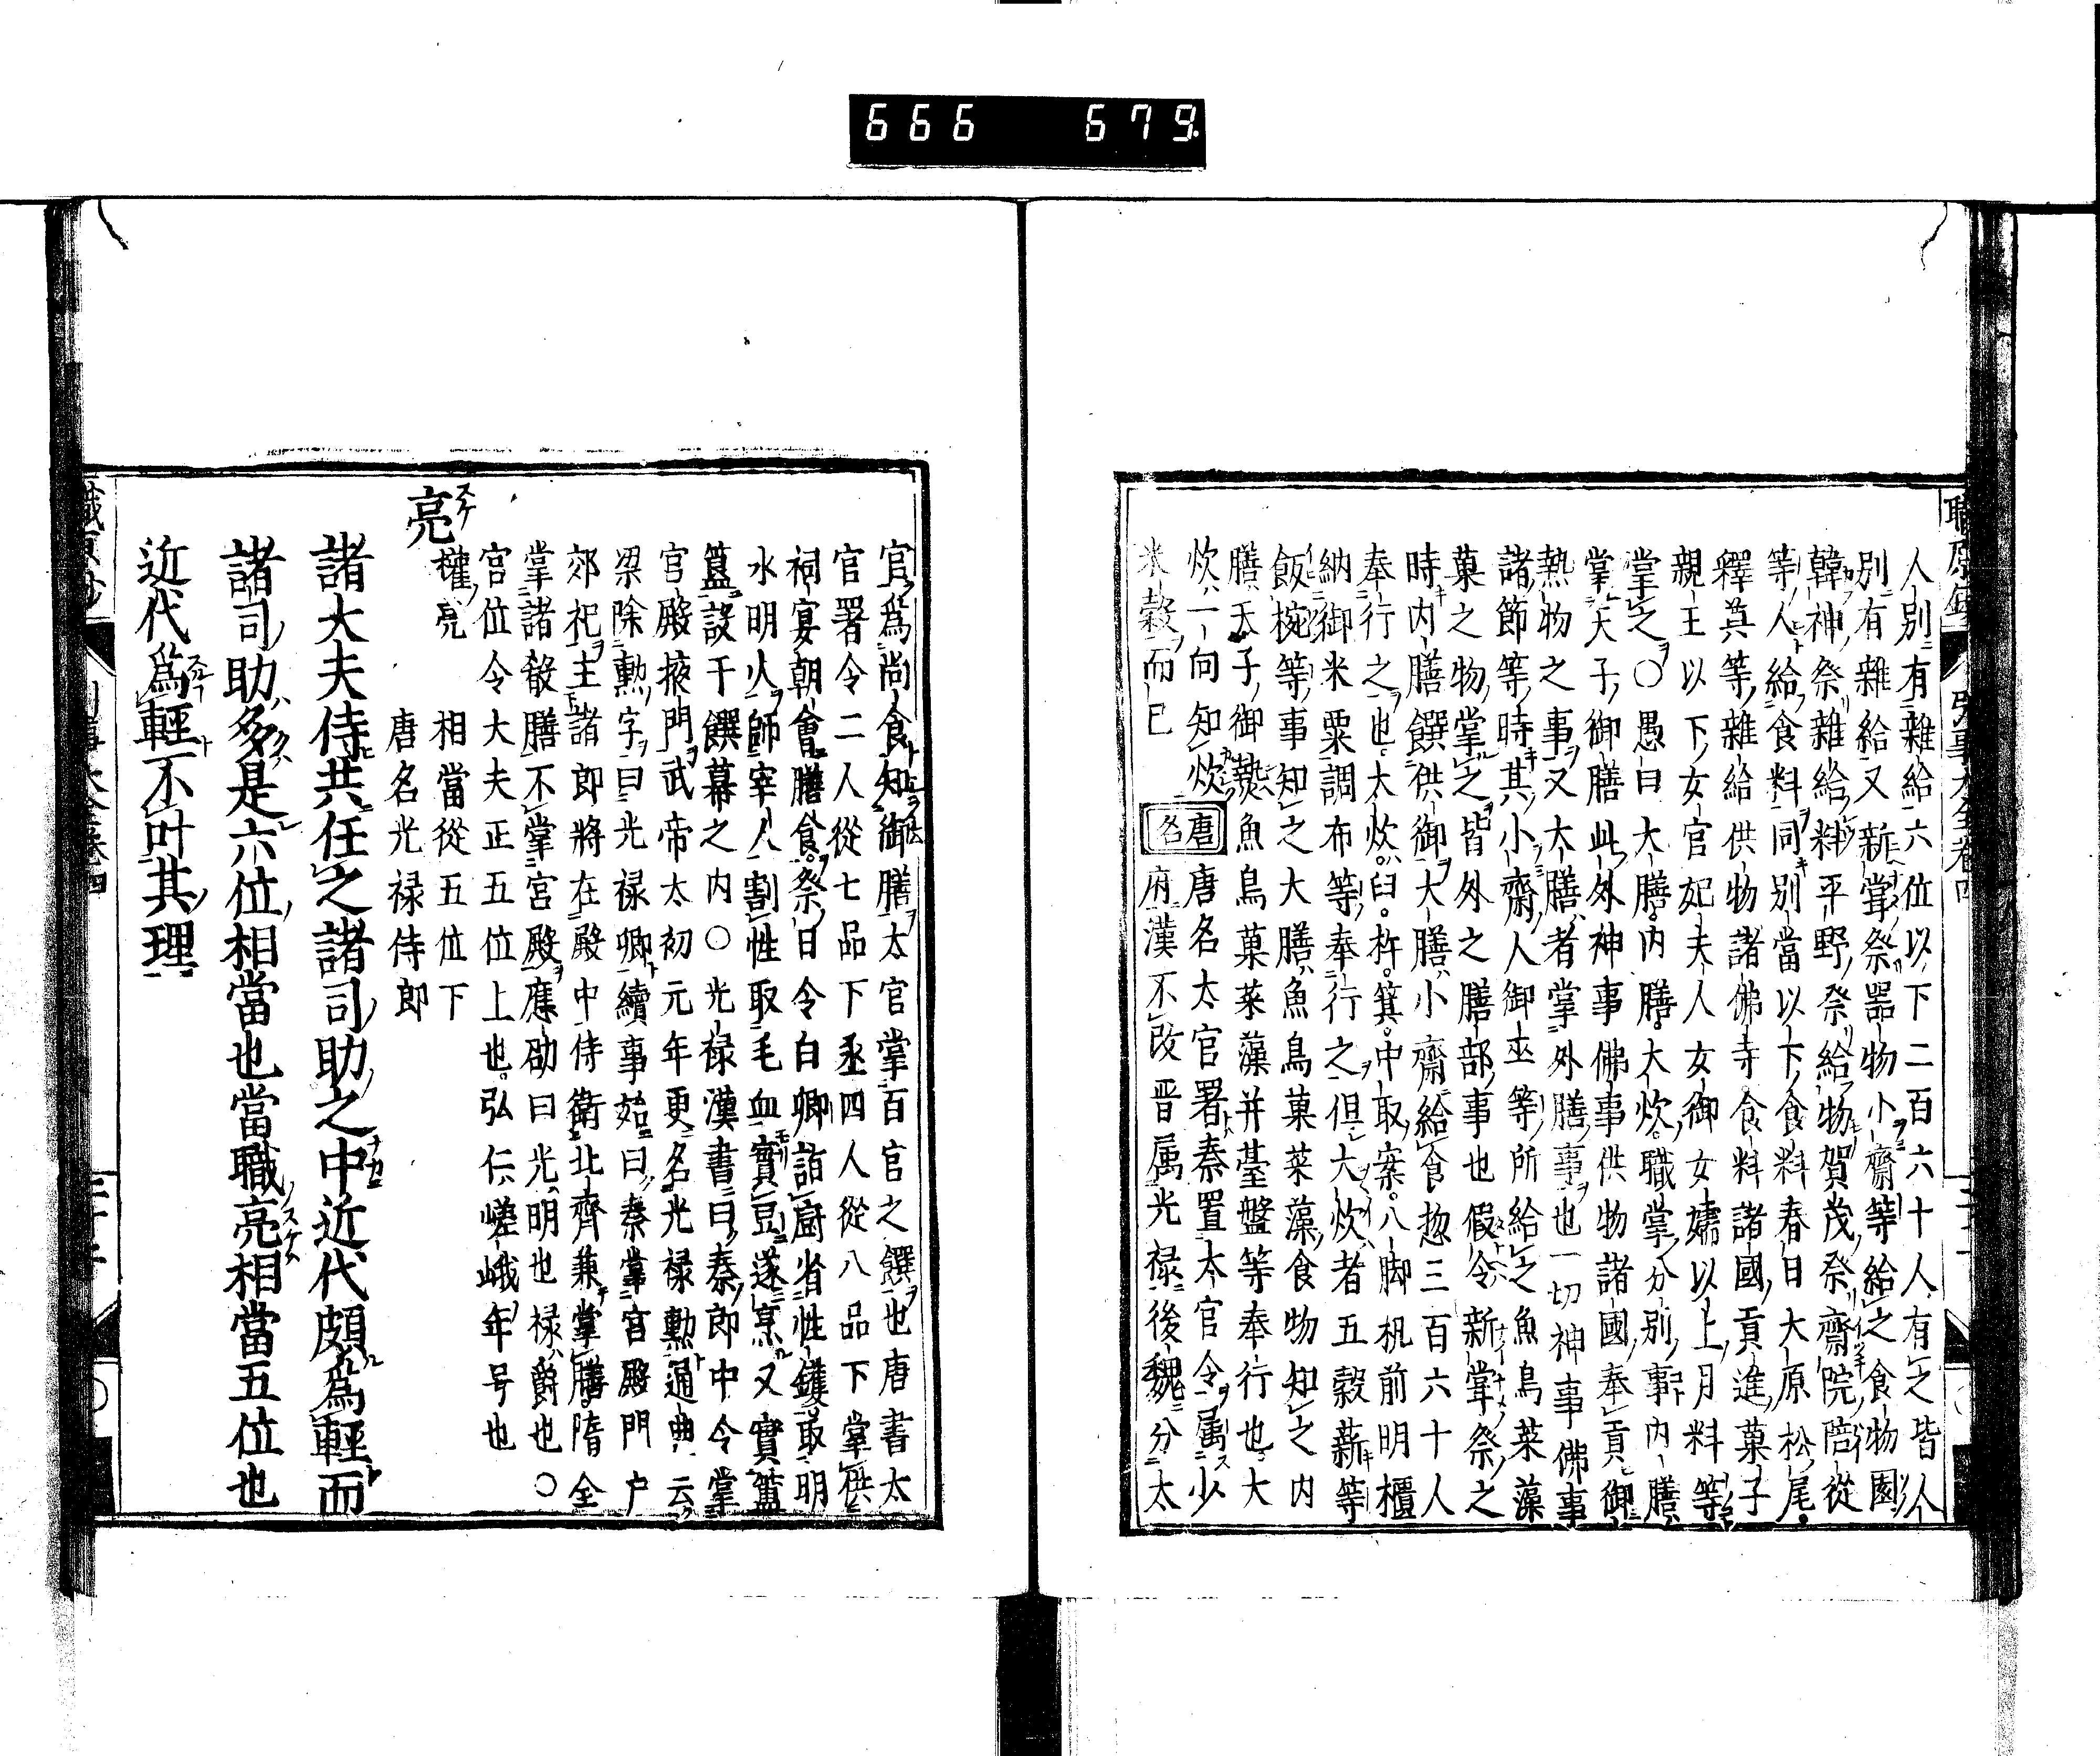 666 679.
人別有雜給六位以下二百六十人有之皆人
別有雜給又新甞祭器物小齋等給之食物園
韓神祭雜給料平野祭給物賀茂祭齋院陪從
等人給食料同別當以下食料春日大原松尾
釋奠等雜給供物諸佛寺食料諸國貢進菓子
親王以下女官妃夫人女御女嬬以上月料等
掌之○愚曰大膳內膳大炊職掌分別事内膳
掌天子御膳此外神事佛事供物諸國奉貢御
熱物之事又大膳者掌外膳事也一切神事佛事
諸節等時其小齋人御巫等所給之魚鳥菜藻
菓之物掌之皆外之膳部事也假令新甞祭之
時内膳饌供御大膳小齋給食惣三百六十人
奉行之也大炊臼杵箕中取案八脚机前明櫃
納御米粟調布等奉行之但大炊者五穀薪等
飯椀等事知之大膳魚鳥菓菜藻食物知之内
膳天子御熱魚鳥菓菜藻并臺盤等奉行也大
炊一向知炊
米穀而已
唐名
唐名太官署秦置太官令属少
府漢不改晋属光禄後魏分太
官爲尚食知御膳太官掌百官之饌也唐書太
官署令二人從七品下丞四人從八品下掌供
祠宴朝會膳食祭日令白卿詣厨省牲鑊取明
水明火師宰人割牲取毛血實豆遂烹又實簠
簋設于饌幕之内○光禄漢書曰秦郎中令掌
官殿掖門武帝太初元年更名光禄勲通典云
梁除勲字曰光禄卿續事始曰秦掌宮殿門户
郊祀主諸郎將在殿中侍衛北齊兼掌膳隋全
掌諸殽膳不掌宮殿應劭曰光明也禄爵也○
宮位令大夫正五位上也弘仁嵯峨年号也
權亮
相當從五位下
唐名光禄侍郎
亮
諸大夫侍共任之諸司助之中近代頗爲輕而
諸司助多是六位相當也當職亮相當五位也
近代爲輕不叶其理